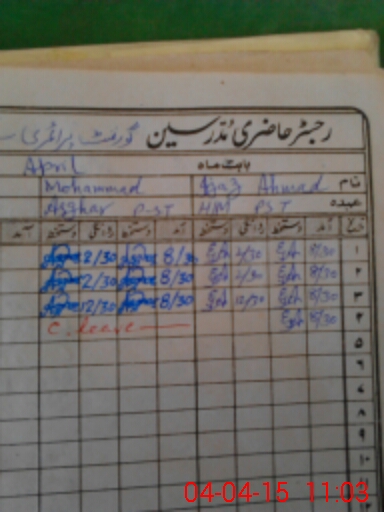 رجسٹر حاضری مدرسین گورنمنٹ پرائمری
بابت ماہ April
نام Ijaz Ahmad Mohammad
عہدہ HM PST Asghar PST
تاریخ آمد دستخط روانگی دستخط آمد دستخط روانگی دستخط آمد
۱ 8/30 2/30 8/30 2/30
۲ 8/30 2/30 8/30 2/30
۳ 8/30 12/30 8/30 12/30
۴ 8/30 C. leave
۵
۶
۷
۸
۹
۱۰
۱۱
04-04-15 11:03